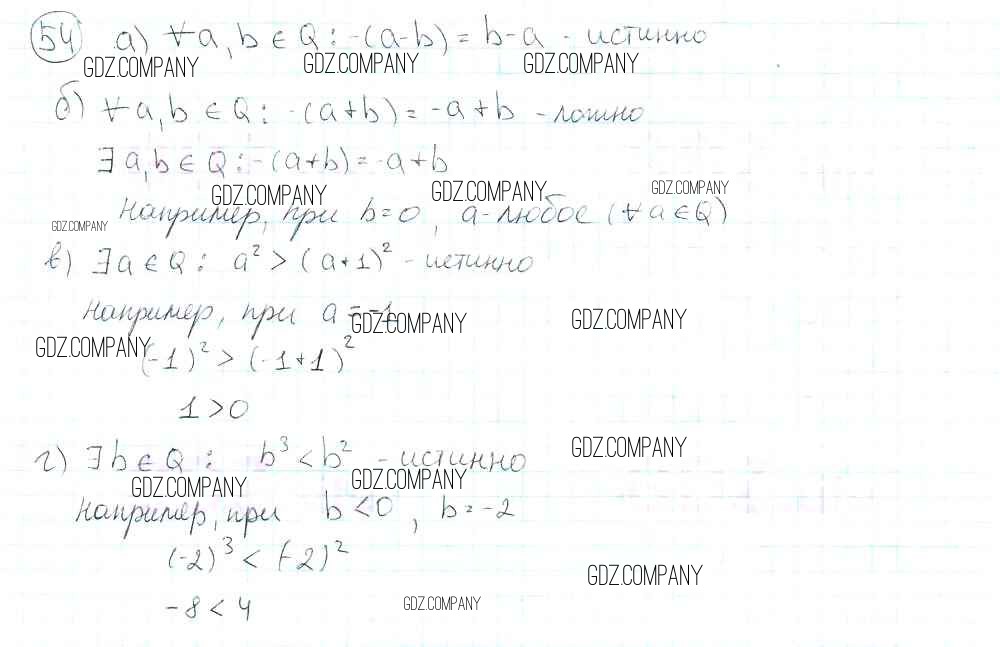 54 а) ∀a, b ∈ Q : -(a-b) = b-a - истинно
GDZ.COMPANY GDZ.COMPANY GDZ.COMPANY
б) ∀a, b ∈ Q : -(a+b) = -a+b - ложно
∃ a, b ∈ Q : -(a+b) = -a+b
GDZ.COMPANY GDZ.COMPANY GDZ.COMPANY
Например, при b=0, a-любое (∀a∈Q)
GDZ.COMPANY
в) ∃a ∈ Q : a² > (a+1)² - истинно
Например, при a = -1
GDZ.COMPANY GDZ.COMPANY
GDZ.COMPANY
(-1)² > (-1+1)²
1 > 0
г) ∃b ∈ Q : b³ < b² - истинно
GDZ.COMPANY
GDZ.COMPANY GDZ.COMPANY
Например, при b < 0, b = -2
(-2)³ < (-2)²
GDZ.COMPANY
-8 < 4
GDZ.COMPANY